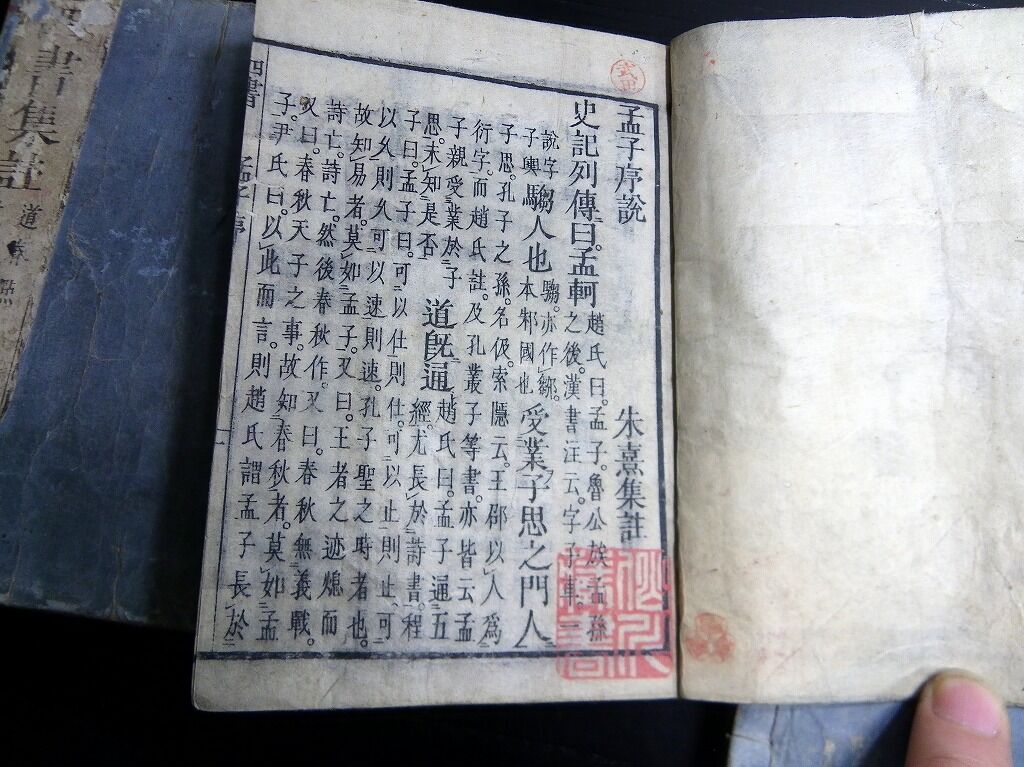 孟子序說 朱熹集註
史記列傳曰。孟軻
趙氏曰。孟子。魯公族孟孫
之後。漢書注云。字子車。一
說字
子輿
騶人也
騶。亦作鄒。
本邾國也
受業子思之門人
子思。孔子之孫。名伋。索隱云。王邵以人爲
衍字。而趙氏註。及孔叢子等書。亦皆云孟
子親受業於子
思。未知是否。
道旣通
趙氏曰。孟子通五
經。尤長於詩書。程
子曰。孟子曰。可以仕則仕。可以止則止。可
以久則久。可以速則速。孔子聖之時者也。
故知易者。莫如孟子。又曰。王者之迹熄而
詩亡。詩亡。然後春秋作。又曰。春秋無義戰。
又曰。春秋天子之事。故知春秋者。莫如孟
子。尹氏曰。以此而言。則趙氏謂孟子長於
四書 孟子序 一
書集註 道春點